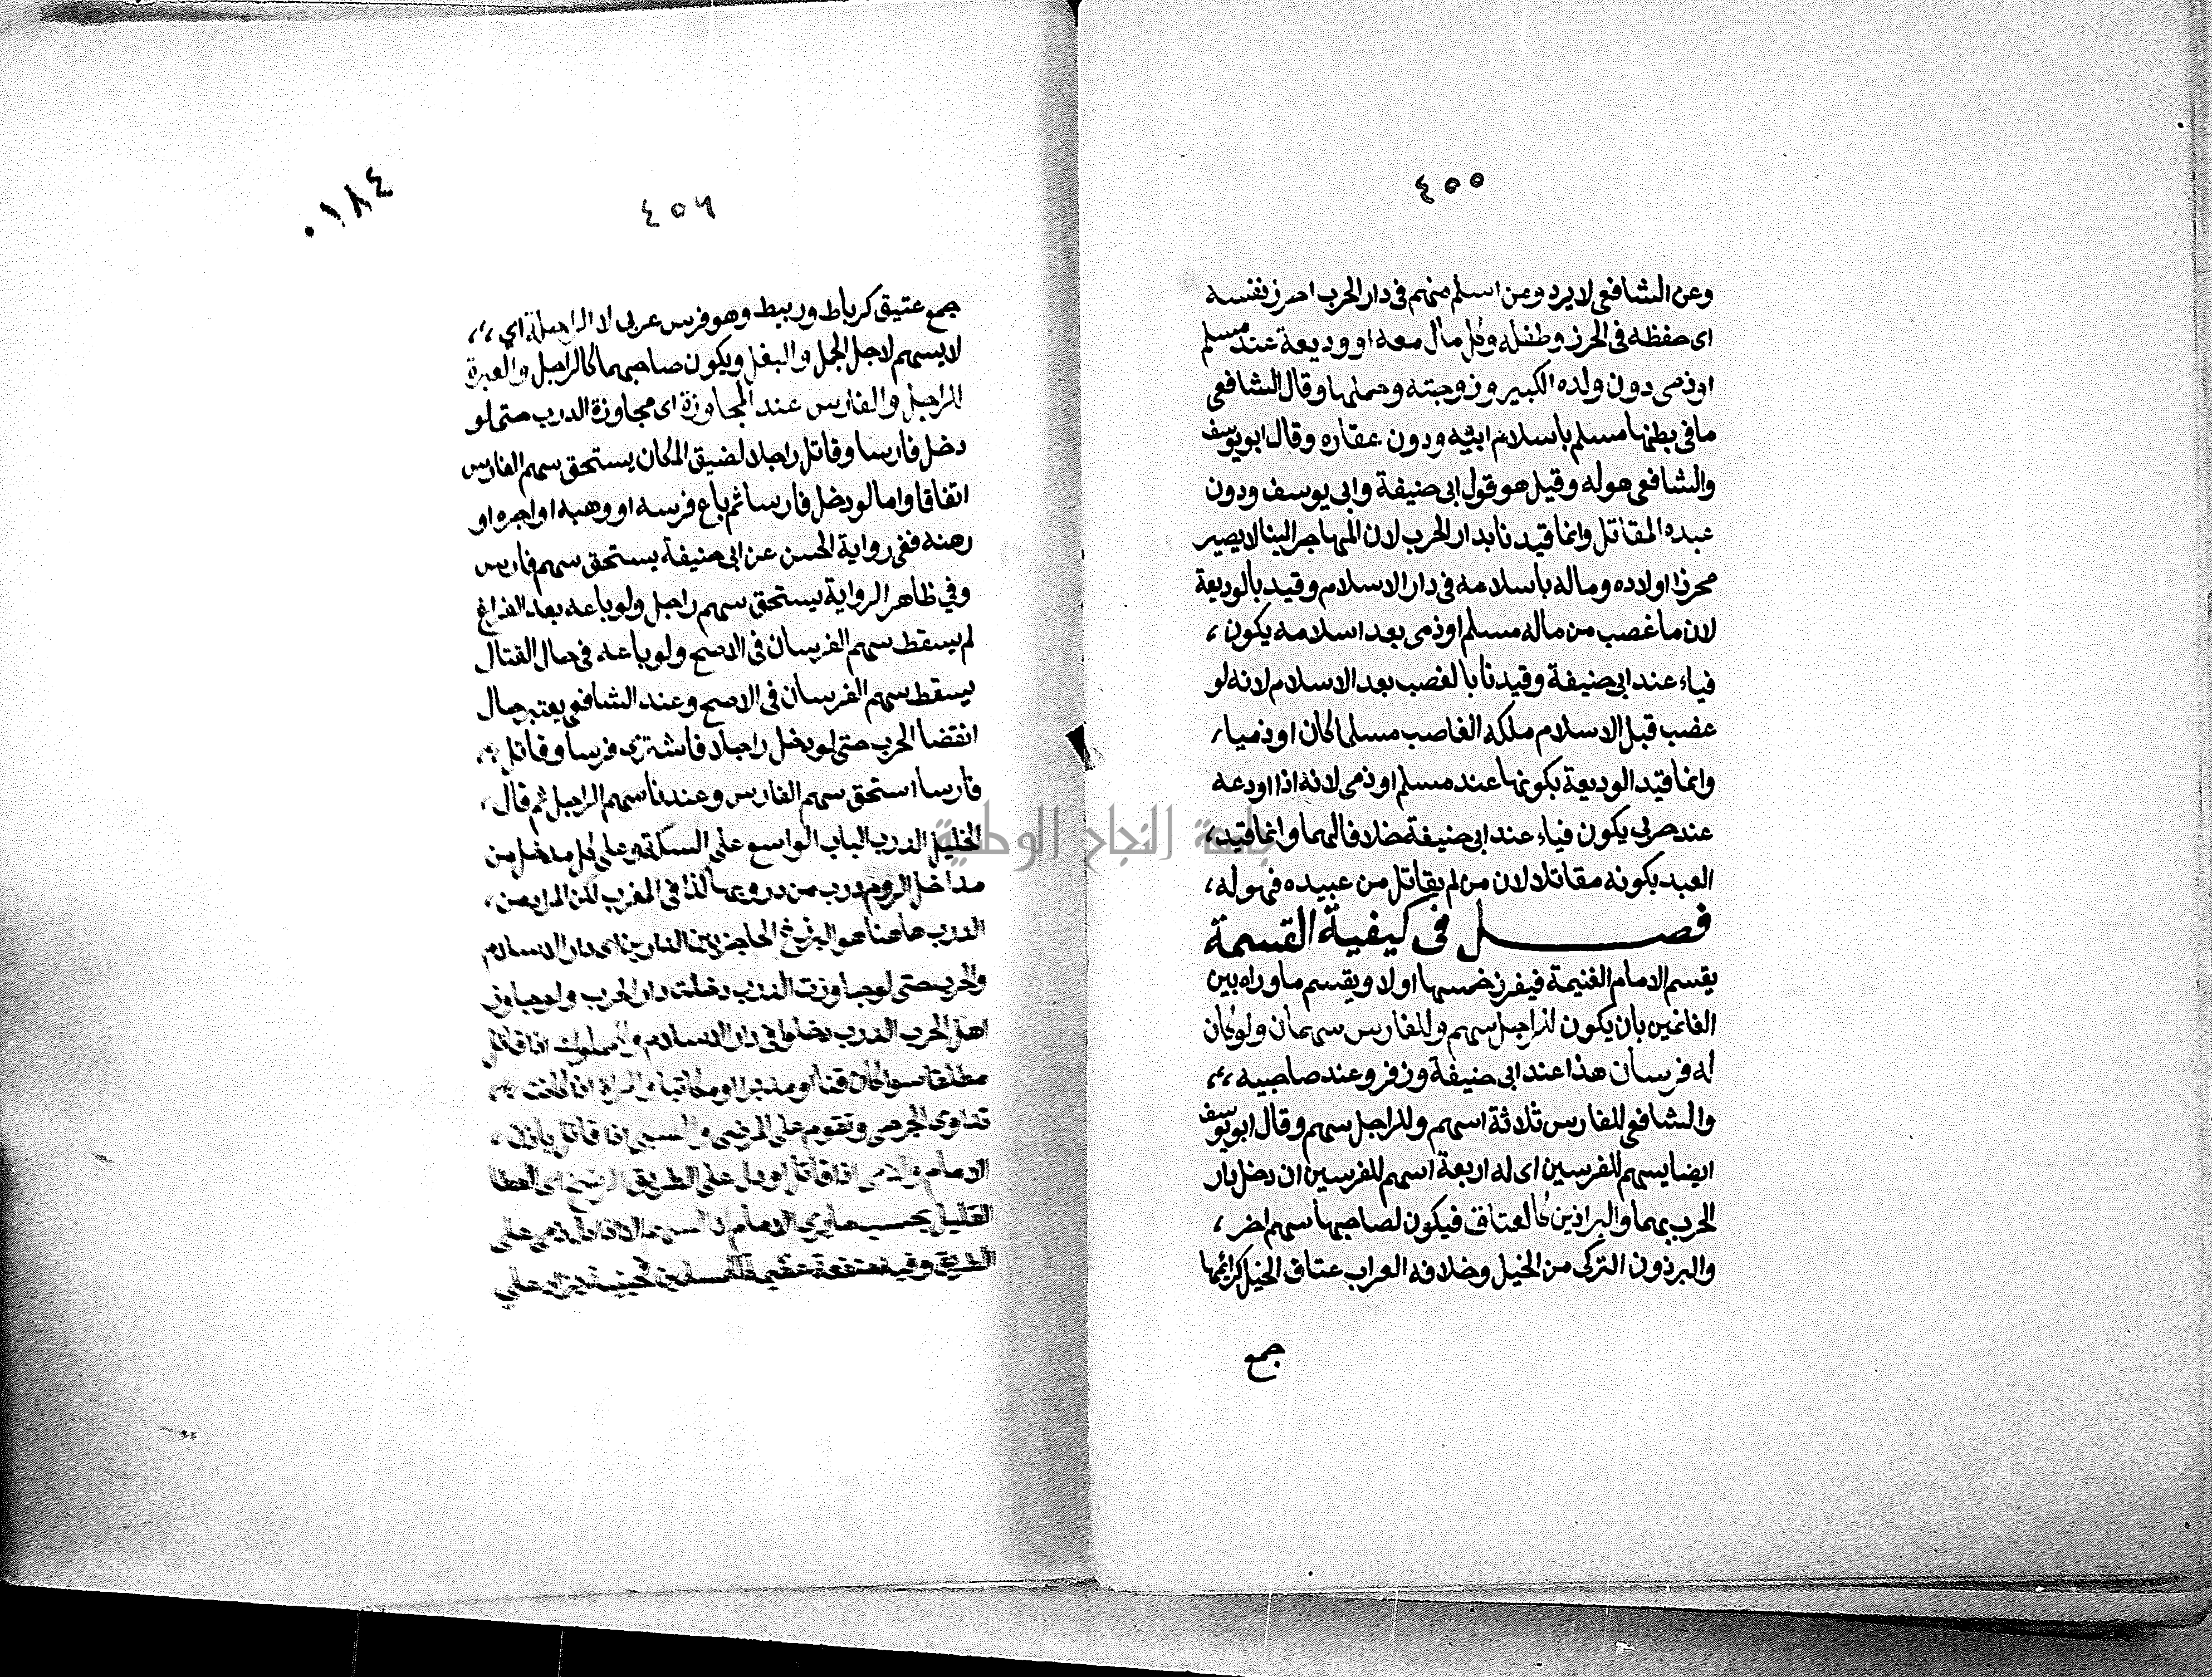 ٤٥٥
وعن الشافعى لا يرد ومن اسلم منهم فى دار الحرب احرز نفسه
اى حفظه فى الحرز وطفله وكل مال معه او وديعة عند مسلم
او ذمى دون ولده الكبير وزوجته وحملها وقال الشافعى
ما فى بطنها مسلم باسلام ابيه ودون عقاره وقال ابو يوسف
والشافعى هو له وقيل هو قول ابى حنيفة وابى يوسف ودون
عبده المقاتل وانما قيدنا بدار الحرب لان المهاجر الينا لا يصير
محرزا اولاده وماله باسلامه فى دار الاسلام وقيد بالوديعة
لان ما غصب من ماله مسلم او ذمى بعد اسلامه يكون ،
فياء عند ابى حنيفة وقيدنا بالغصب بعد الاسلام لانه لو
غضب قبل الاسلام ملكه الغاصب مسلما كان او ذميا
وانما قيد الوديعة بكونها عند مسلم او ذمى لانه اذا اودعه
عند حربى يكون فياء عند ابى حنيفة خلافا لهما وانما قيد،
العبد بكونه مقاتلا لان من لم يقاتل من عبيده فهو له ،
فصل فى كيفية القسمة
يقسم الامام الغنيمة فيفرز خمسها اولا ويقسم ما وراه بين
الغانمين بان يكون للراجل سهم وللفارس سهمان ولو كان
له فرسان هذا عند ابى حنيفة وزفر وعند صاحبيه ،،
والشافعى للفارس ثلاثة اسهم وللراجل سهم وقال ابو يوسف
ايضا يسهم للفرسين اى له اربعة اسهم للفرسين ان دخل دار
الحرب بهما والبراذين كالعتاق فيكون لصاحبها سهم اخر ،
والبرذون التركى من الخيل وخلافه العراب عتاق الخيل كرائمها
جمع
٠١٨٤
٤٥٦
جمع عتيق كرباط وربيط وهو فرس عربى لا الراحلة اي ،،
لا يسهم لاجل الجمل والبغل ويكون صاحبهما كالراجل والعبرة
للراجل والفارس عند المجاوزة اى مجاوزة الدرب حتى لو
دخل فارسا وقاتل راجلا لضيق المكان يستحق سهم الفارس
اتفاقا واما لو دخل فارسا ثم باع فرسه او وهبه او اجره او
رهنه ففى رواية الحسن عن ابى حنيفة يستحق سهم فارس
وفي ظاهر الرواية يستحق سهم راجل ولو باعه بعد الفراغ
لم يسقط سهم الفرسان فى الاصح ولو باعه فى حال القتال
يسقط سهم الفرسان فى الاصح وعند الشافعى يعتبر حال
انقضا الحرب حتى لو دخل راجلا فاشترى فرسا وقاتل ،،
فارسا استحق سهم الفارس وعندنا سهم الراجل ثم قال ،
الخليل الدرب الباب الواسع على السكة وعلى كل مدخل من
مداخل الروم درب من دروبها كذا فى المغرب لكن المراد من ،
الدرب هاهنا هو البرزخ الحاجز بين الدارين اى دار الاسلام
والحرب حتى لو جاوزت الدرب دخلت دار الحرب ولو جاوز
اهل الحرب الدرب دخلوا فى دار الاسلام والمملوك اذا قاتل
مطلقا سوا كان قنا او مدبرا او مكاتبا والمراة اذا كانت ،،
تداوى الجرحى وتقوم على المرضى والصبى اذا قاتل باذن ،
الامام والذمى اذا قاتل او دل على الطريق الرضخ اى العطا
القليل بحسب ما يرى الامام الا اذا دل ذمى على
الطريق وفيه منفعة عظيمة للمسلمين فحينئذ يزاد على